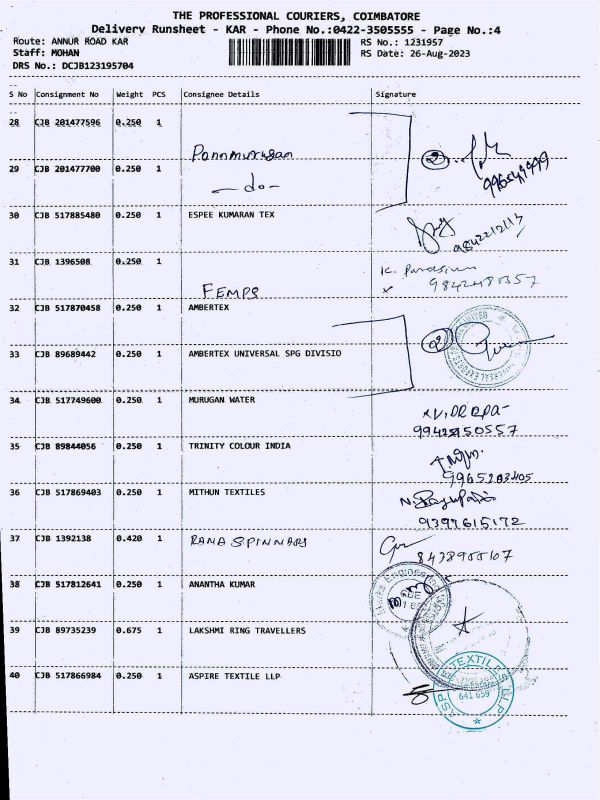 THE PROFESSIONAL COURIERS, COIMBATORE
Delivery Runsheet - KAR - Phone No.:0422-3505555 - Page No.:4
Route: ANNUR ROAD KAR RS No.: 1231957
Staff: MOHAN RS Date: 26-Aug-2023
DRS No.: DCJB123195704
S No Consignment No Weight PCS Consignee Details Signature
28 CJB 201477596 0.250 1
Ponnmurugan 2
29 CJB 201477700 0.250 1
-do-
30 CJB 517885480 0.250 1 ESPEE KUMARAN TEX
9842212113
31 CJB 1396508 0.250 1
FEMPS
32 CJB 517870458 0.250 1 AMBERTEX
2
33 CJB 89689442 0.250 1 AMBERTEX UNIVERSAL SPG DIVISIO
34 CJB 517749600 0.250 1 MURUGAN WATER
35 CJB 89844056 0.250 1 TRINITY COLOUR INDIA
36 CJB 517869403 0.250 1 MITHUN TEXTILES
9397615172
37 CJB 1392138 0.420 1 RANA SPINNARS
38 CJB 517812641 0.250 1 ANANTHA KUMAR
39 CJB 89735239 0.675 1 LAKSHMI RING TRAVELLERS
40 CJB 517866984 0.250 1 ASPIRE TEXTILE LLP
641 659